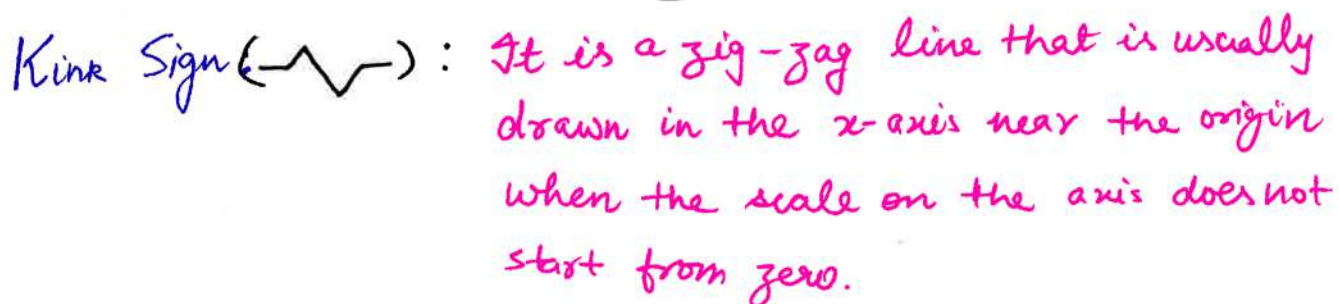 Kink Sign (⩘) : It is a zig-zag line that is usually
drawn in the x-axis near the origin
when the scale on the axis does not
start from zero.